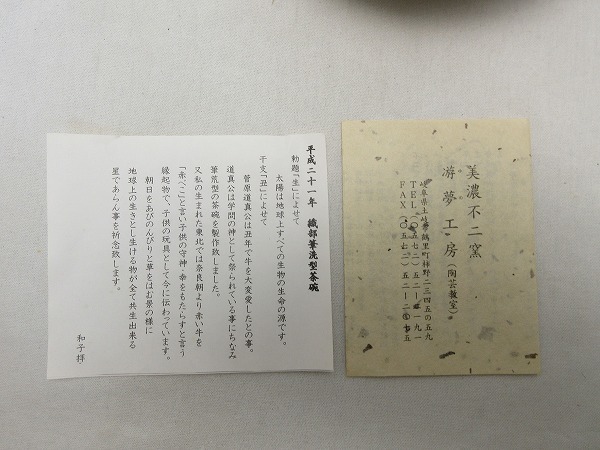 平成二十一年 織部筆洗型茶碗
勅題「生」によせて
太陽は地球上すべての生物の生命の源です。
干支「丑」によせて
菅原道真公は丑年で牛を大変愛したとの事。
道真公は学問の神として祭られている事にちなみ
筆洗型の茶碗を製作致しました。
又私の生まれた東北では奈良朝より赤い牛を
「赤べこ」と言い子供の守神、幸をもたらすと言う
縁起物で、子供の玩具として今に伝わっています。
朝日をあびのんびりと草をはむ景の様に
地球上の生きとし生ける物が全て共生出来る
星であらん事を祈念致します。
和子拝
美濃不二窯
游夢工房(陶芸教室)
岐阜県土岐市鶴里町柿野二三四五の五九
TEL(〇五七二)五二ー二一九一
FAX(〇五七二)五二ー二